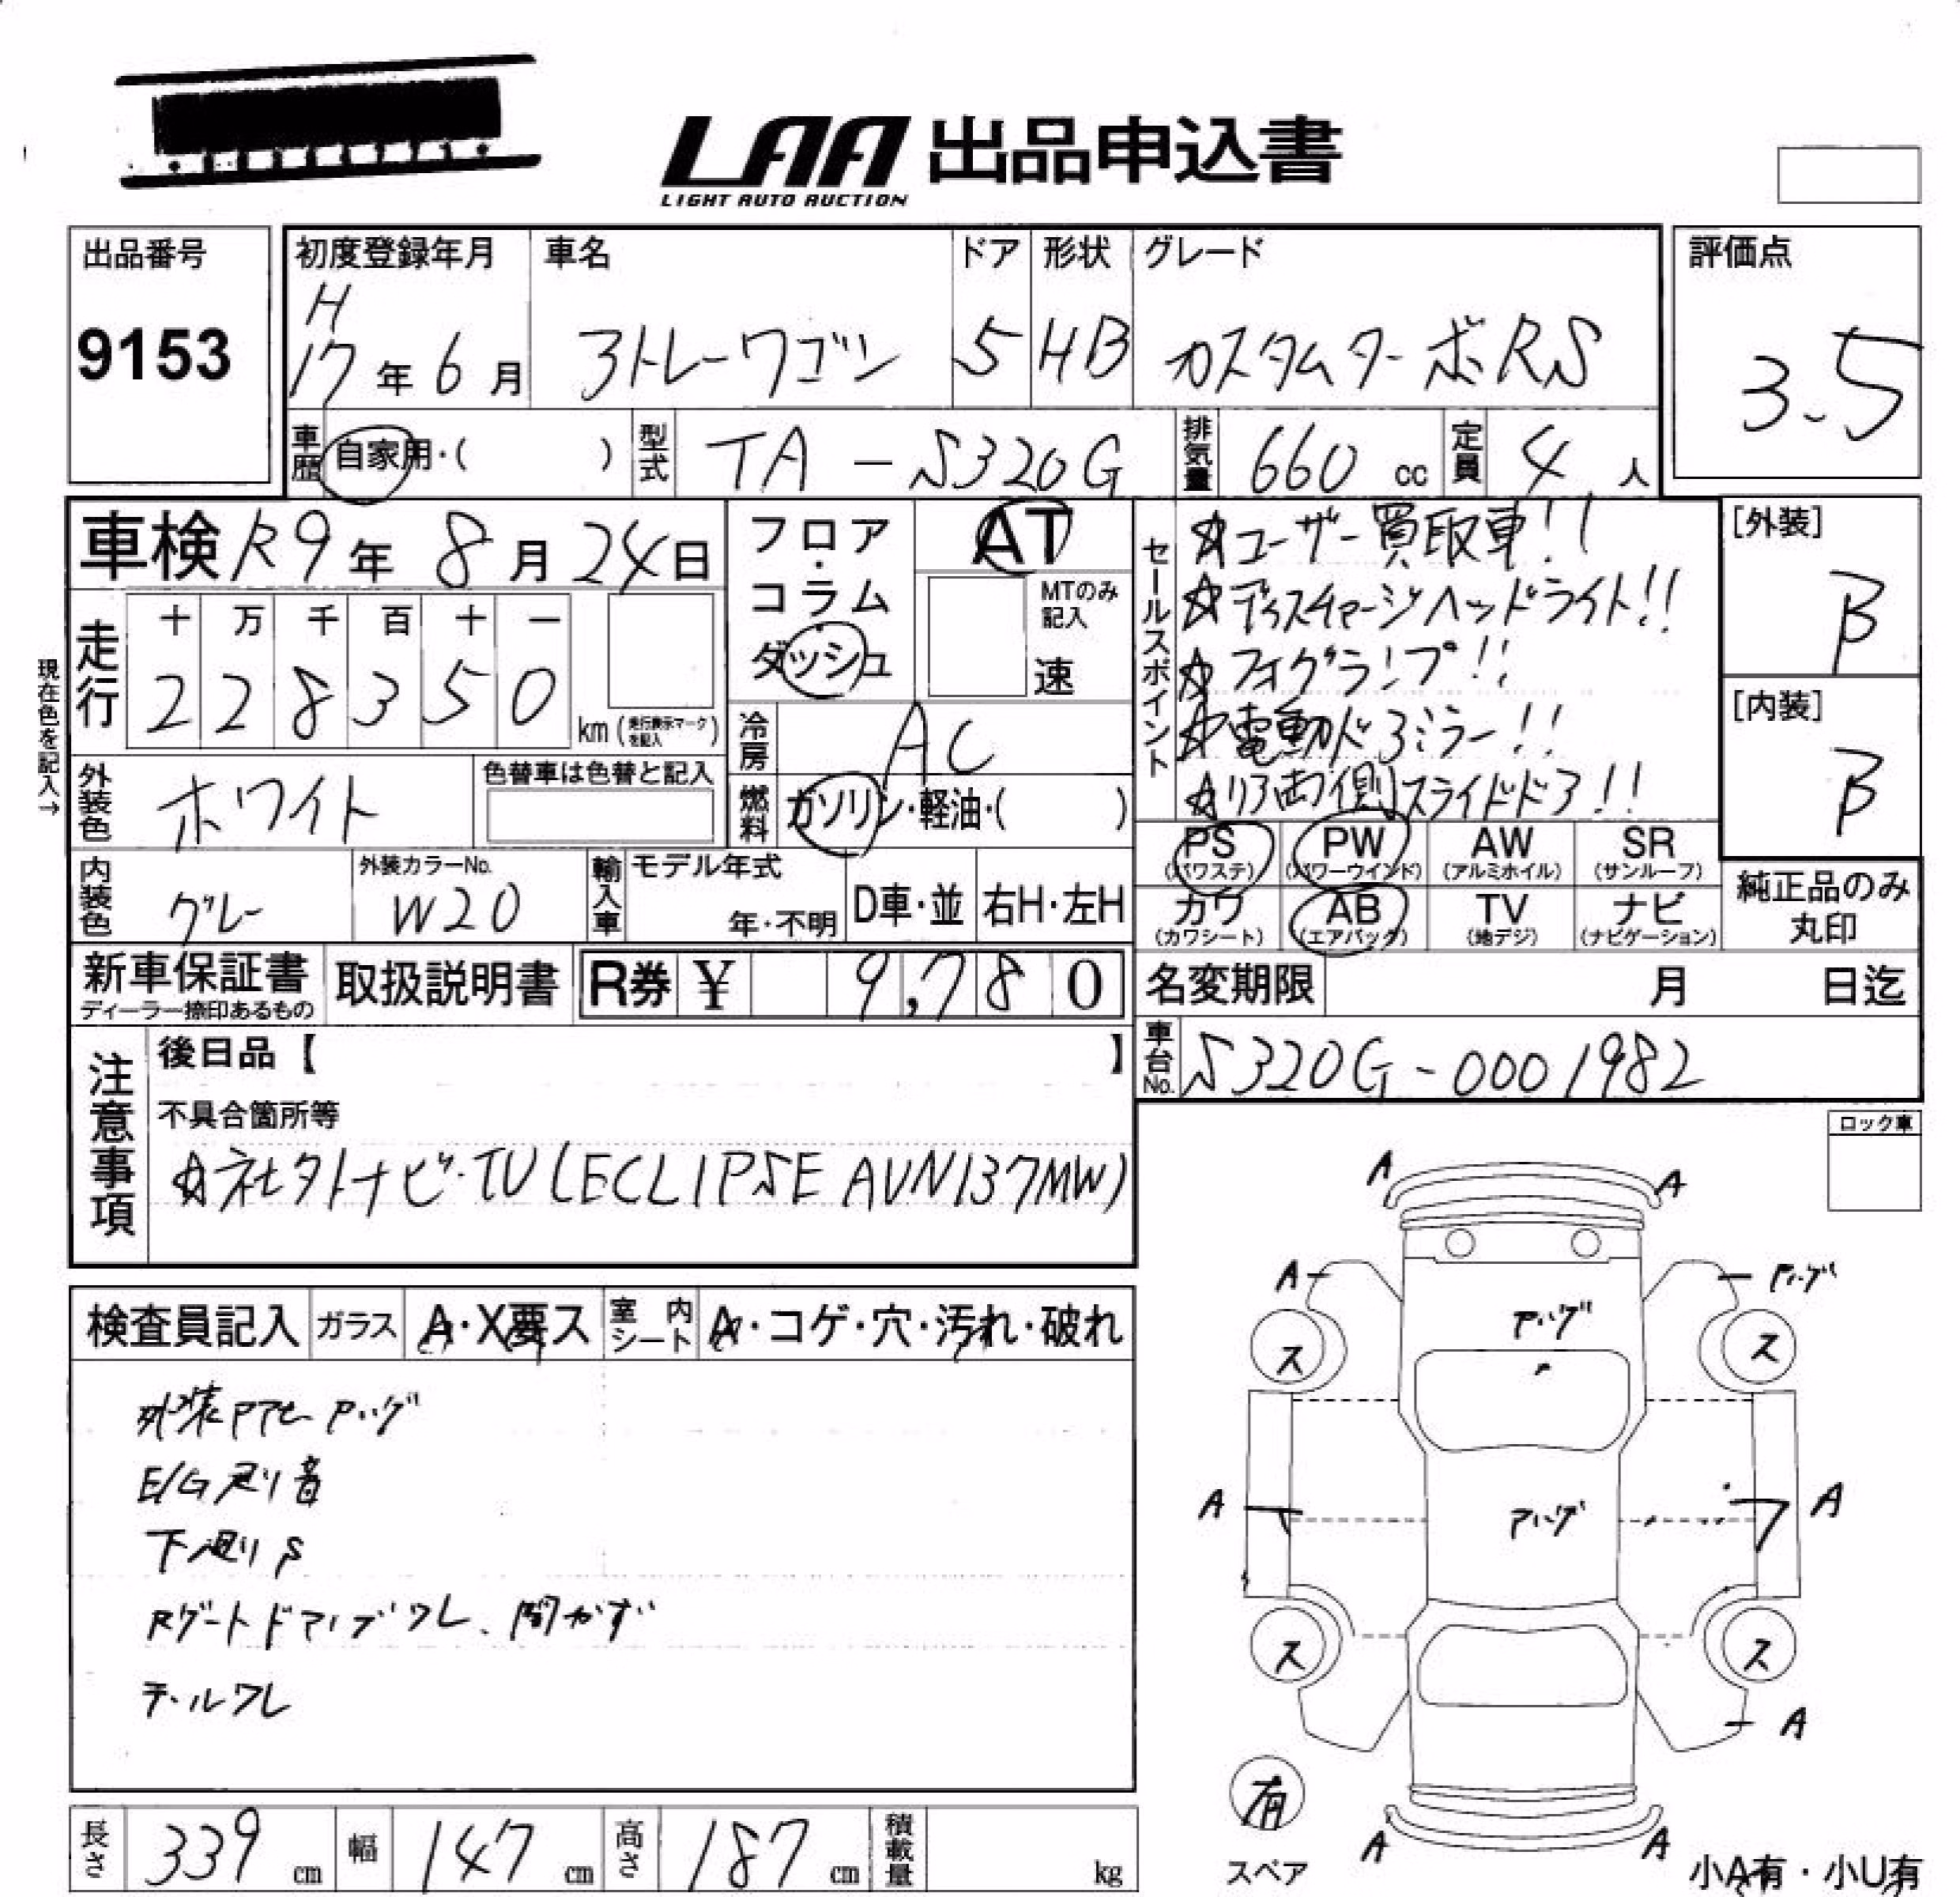 LAA 出品申込書
LIGHT AUTO AUCTION
出品番号
9153
初度登録年月
H
17年6月
車名
アトレーワゴン
ドア
5
形状
HB
グレード
カスタムターボRS
評価点
3.5
車歴 自家用・( )
型式 TA-S320G
排気量 660 cc
定員 4 人
車検 R9年 8月 24日
現在色を記入→
走行
十 万 千 百 十 一
2 2 8 3 5 0
km (走行表示マークを記入)
フロア・コラム・ダッシュ
AT
MTのみ記入
速
冷房 AC
燃料 ガソリン・軽油・( )
外装色 ホワイト
色替車は色替と記入
内装色 グレー
外装カラーNo. W20
輸入車 モデル年式 年・不明
D車・並 右H・左H
セールスポイント
☆ユーザー買取車!!
☆ディスチャージヘッドライト!!
☆フォグランプ!!
☆電動ドアミラー!!
☆リア両側スライドドア!!
[外装]
B
[内装]
B
PS (パワステ) PW (パワーウインド) AW (アルミホイル) SR (サンルーフ)
カワ (カワシート) AB (エアバッグ) TV (地デジ) ナビ (ナビゲーション)
純正品のみ丸印
新車保証書
ディーラー捺印あるもの
取扱説明書
R券 ¥ 9,780
名変期限 月 日迄
車台No. S320G-0001982
注意事項
後日品【 】
不具合箇所等
☆社外ナビ・TV(ECLIPSE AVN137MW)
ロック車
検査員記入 ガラス A・X要ス 室内シート A・コゲ・穴・汚れ・破れ
外装 アセ ハゲ
E/G廻り音
下廻りS
Rゲートドアノブワレ、開かず
テールワレ
A A
A ハゲ
ハゲ
ス ス
A ハゲ A
ス ス
A
有
スペア
A A
小A有・小U有
長さ 339 cm 幅 147 cm 高さ 187 cm 積載量 kg